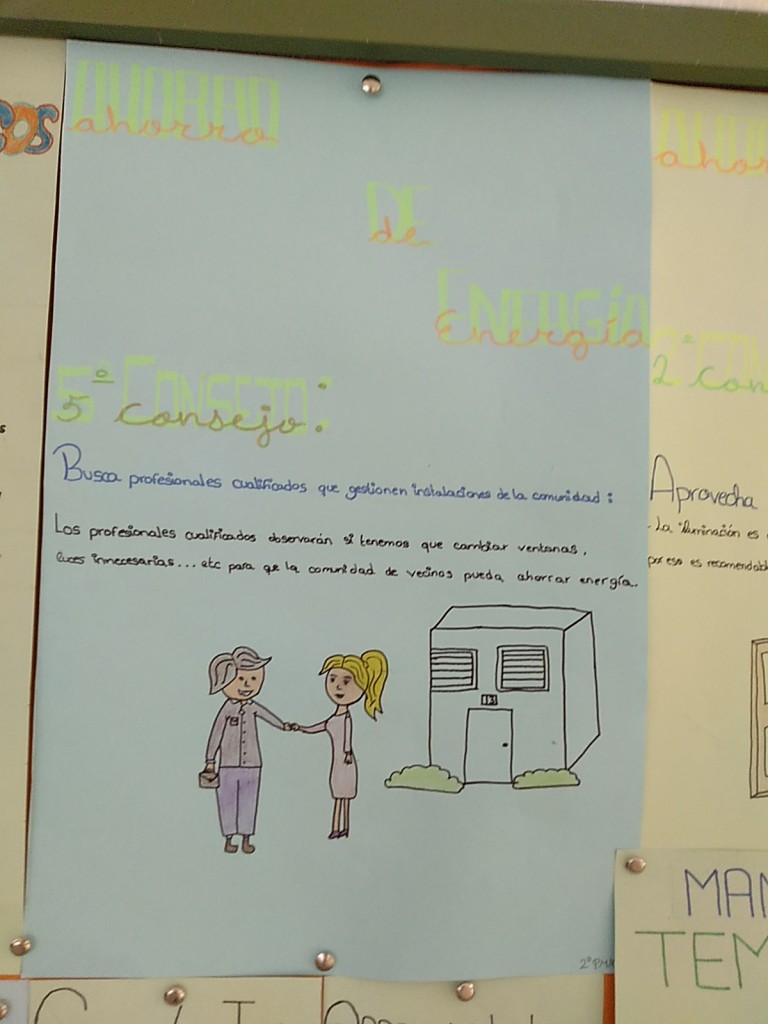 AHORRO
ahorro
DE
de
ENERGÍA
Energía
5º CONSEJO:
5 Consejo:
Busca profesionales cualificados que gestionen instalaciones de la comunidad:
Los profesionales cualificados observarán si tenemos que cambiar ventanas,
luces innecesarias... etc para que la comunidad de vecinos pueda ahorrar energía.
13
2º PM
OS
ahor
2º CON
2 con
Aprovecha
- La iluminación es
por eso es recomendabl
MAN
TEM